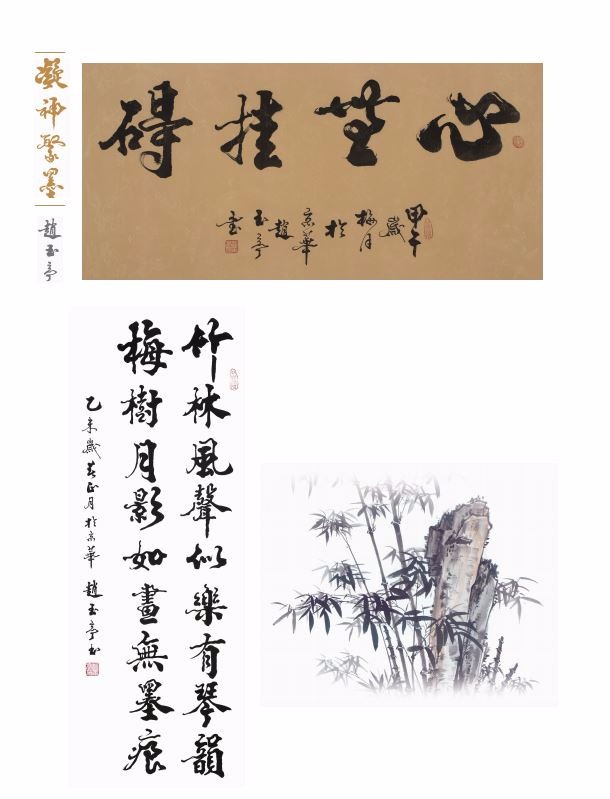 凝神聚墨
趙玉亭
心無挂礙
甲午
歲
梅月
於
京華
趙
玉亭
書
竹林風聲似樂有琴韻
梅樹月影如畫無墨痕
乙未歲春正月於京華 趙玉亭書